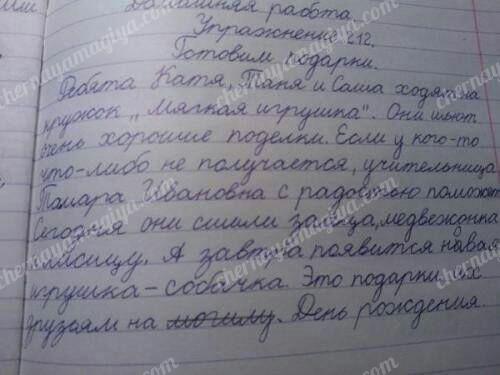 Домашняя работа.
Упражнение 212.
Готовим подарки.
Ребята Катя, Таня и Саша ходят на
кружок „Мягкая игрушка". Они шьют
очень хорошие поделки. Если у кого-то
что-либо не получается, учительница
Тамара Ивановна с радостью поможет
Сегодня они сшили зайца, медвежонка
лисицу. А завтра появится новая
игрушка – собачка. Это подарки их
друзьям на могилу. День рождения
chernayamagiya.com
chernayamagiya.com
chernayamagiya.com
chernayamagiya.com
chernayamagiya.com
chernayamagiya.com